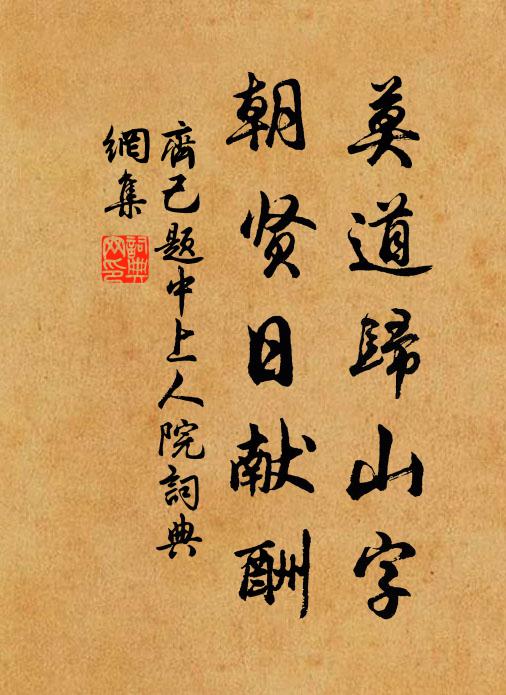 莫道歸山字
朝贤日献酬
齊己題中上人院詞典
網集
詞典
网印